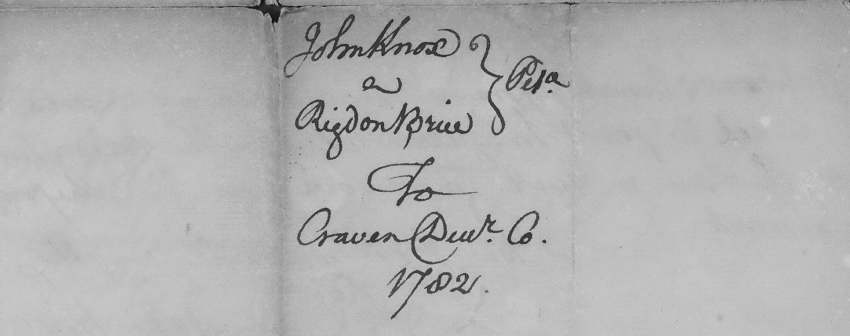 John Knox
a
Rigdon Brice
Peta
To
Craven Decr. Co.
1782.